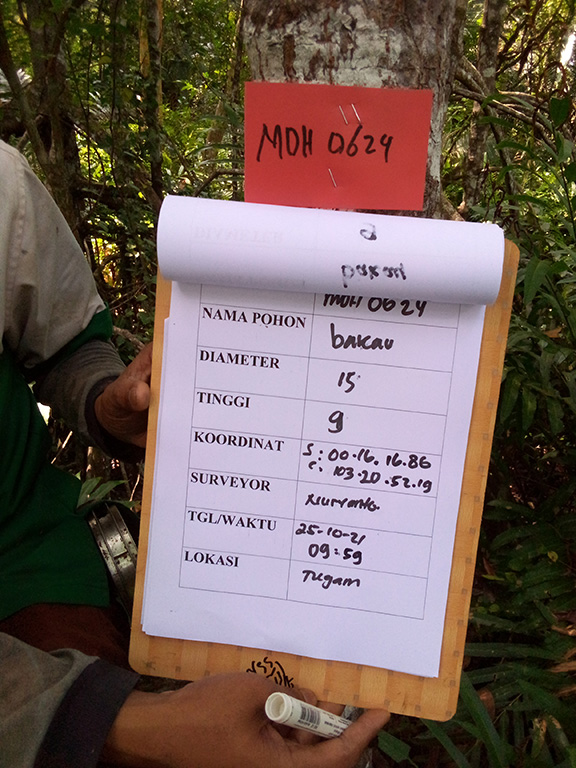 MDH 0624
MDH 0624
NAMA POHON bakau
DIAMETER 15
TINGGI 9
KOORDINAT S : 00.16.16.86
E : 103.20.52.19
SURVEYOR
TGL/WAKTU 25-10-21
09:59
LOKASI Tugam